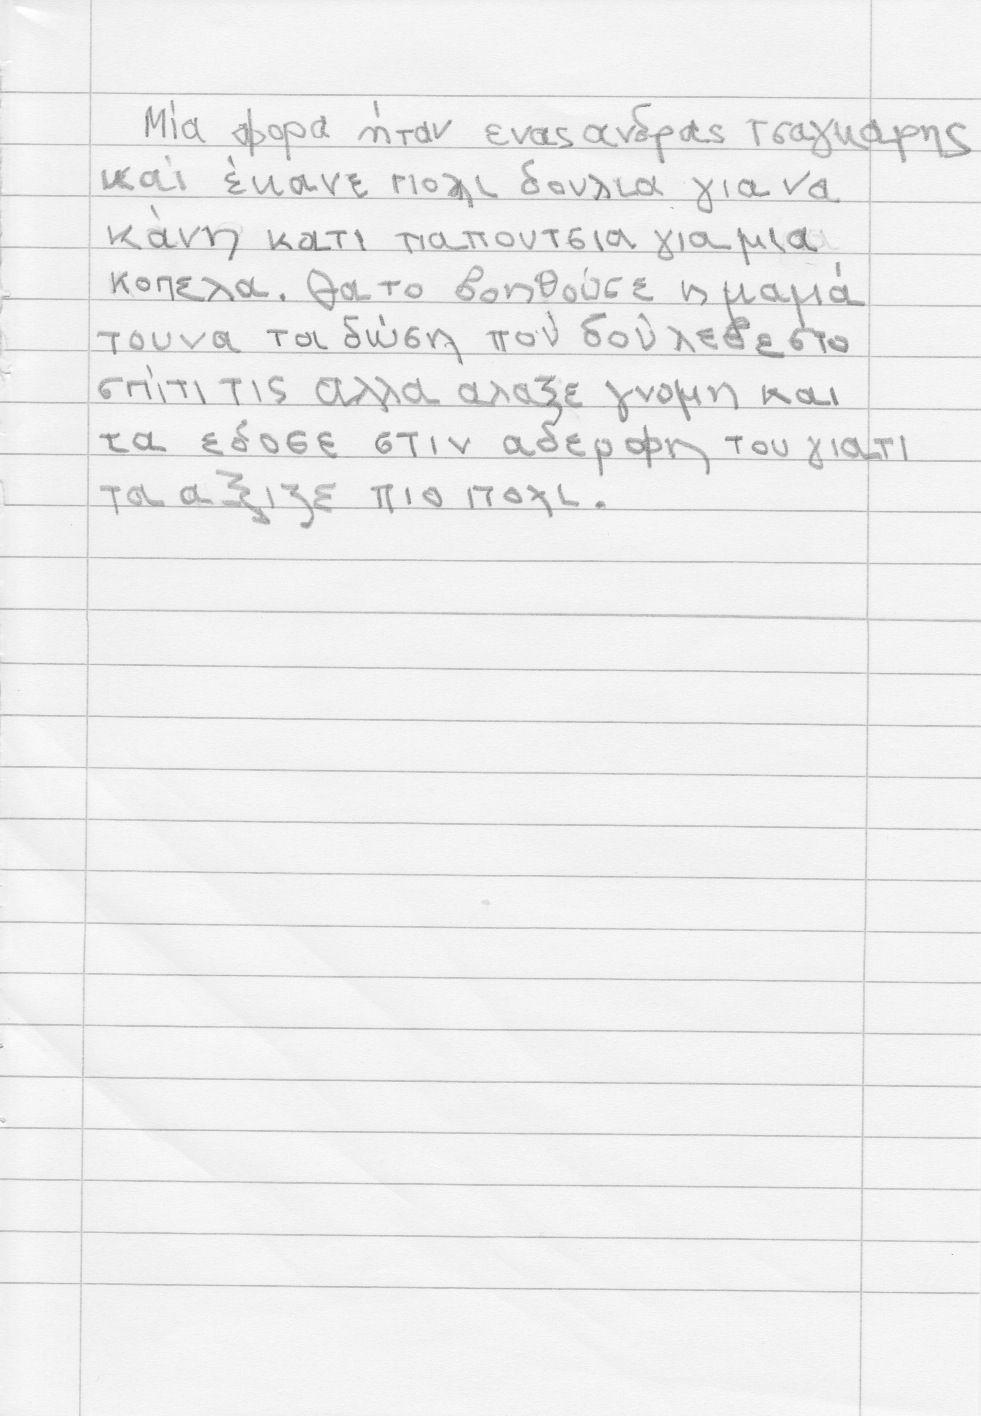 Μία φορα ήταν ενας ανδρας τσαγκαρης
και έκανε πολι δουλια για να
κάνη κατι παπουτσια για μια
κοπελα. θα το βοηθούσε η μαμά
του να τα δώση πού δούλεβε στο
σπίτι τις αλλά αλαξε γνομη και
τα εδοσε στιν αδερφη του γιατι
τα αξιζε πιο πολι.